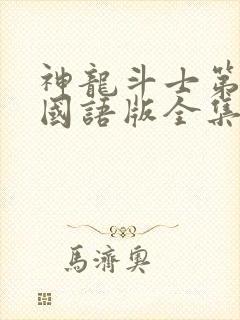 神龍斗士第
國語版全集
馬濟奧